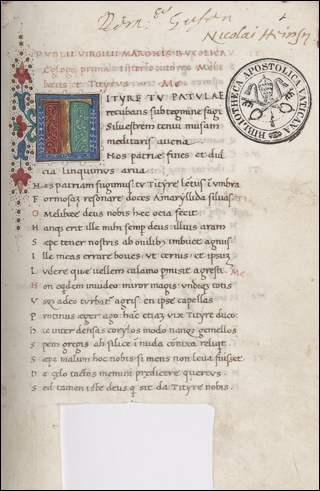 Nicolai Heinsij
PVBLII VIRGILII MARONIS BVCOLICA
Egloga prima Interlocutores Melibe
beus et Tityrus Me
ITYRE TV PATVLAE
recubans sub tegmine fagi
Silvestrem tenui musam
meditaris avena
Nos patriae fines et dul
cia linquimus arva
Nos patriam fugimus tu Tityre letus i umbra
Formosam resonare doces Amaryllida silvas
O Melibœe deus nobis hec ocia fecit
Nanq; erit ille mihi semp deus: illius aram
Sepe tener nostris ab ovilibus imbuet agnus
Ille meas errare boves ut cernis et ipsum
Ludere quae vellem calamo pmisit agresti
Me
Non eqdem invideo miror magis undiq; totis
Vsq; adeo turbatur agris en ipse capellas
Protinus aeger ago hanc etiam vix Tityre duco
Hic inter densas corylos modo nanq; gemellos
Spem gregis ah silice i nuda conixa reliqt
Sepe malum hoc nobis si mens non leva fuisset
De celo tactas memini predicere quercus
Sed tamen iste deus q sit da Tityre nobis
BIBLIOTHECA APOSTOLICA VATICANA